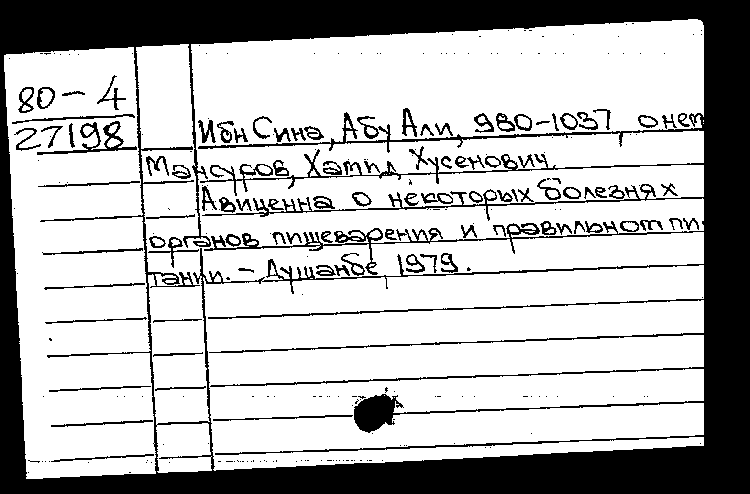 80-4
27198
Ибн Сина, Абу Али, 980-1037, о нем
Мансуров, Хамид Хусенович.
Авиценна о некоторых болезнях
органов пищеварения и правильном пи-
тании. - Душанбе, 1979.